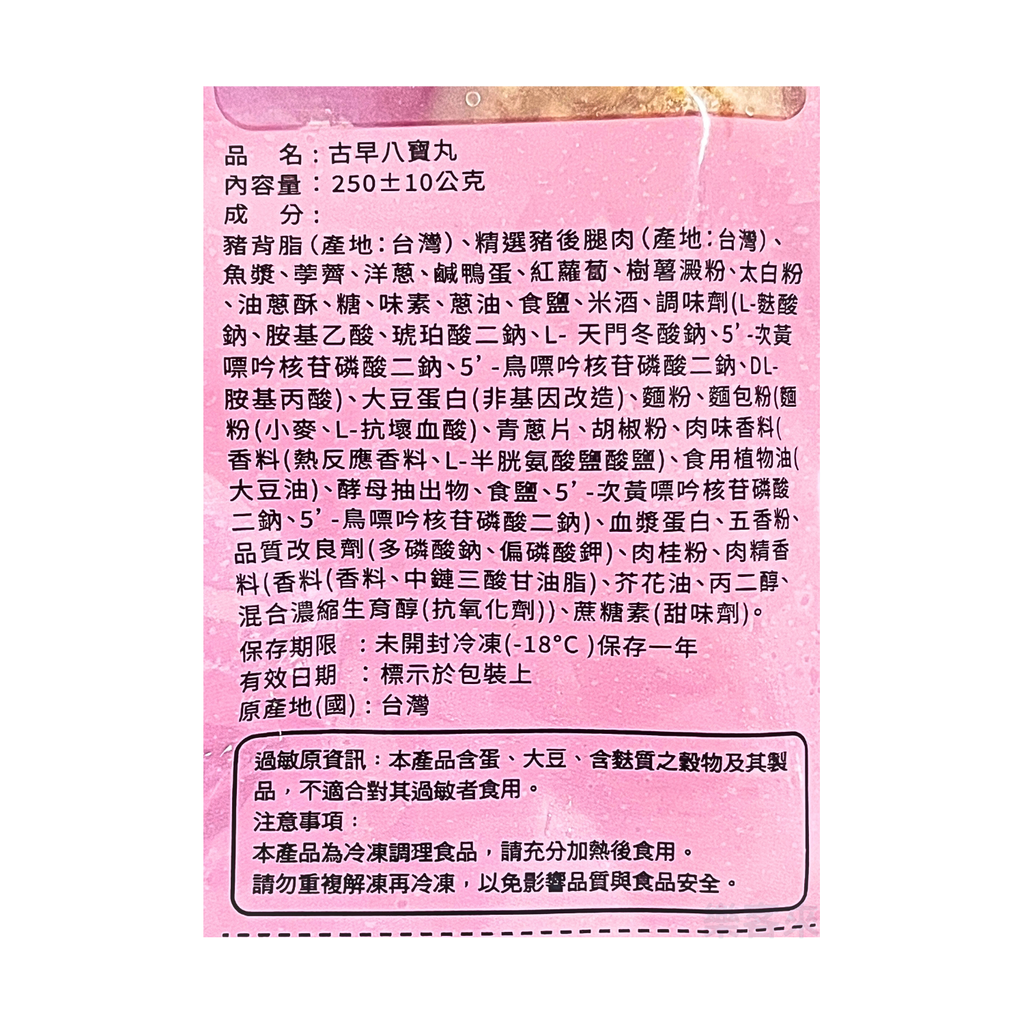 品　名：古早八寶丸
內容量：250±10公克
成　分：
豬背脂(產地:台灣)、精選豬後腿肉(產地:台灣)、
魚漿、荸薺、洋蔥、鹹鴨蛋、紅蘿蔔、樹薯澱粉、太白粉
、油蔥酥、糖、味素、蔥油、食鹽、米酒、調味劑(L-麩酸
鈉、胺基乙酸、琥珀酸二鈉、L- 天門冬酸鈉、5’-次黃
嘌呤核苷磷酸二鈉、5’-鳥嘌呤核苷磷酸二鈉、DL-
胺基丙酸)、大豆蛋白(非基因改造)、麵粉、麵包粉(麵
粉(小麥、L-抗壞血酸)、青蔥片、胡椒粉、肉味香料(
香料(熱反應香料、L-半胱氨酸鹽酸鹽)、食用植物油(
大豆油)、酵母抽出物、食鹽、5’-次黃嘌呤核苷磷酸
二鈉、5’-鳥嘌呤核苷磷酸二鈉)、血漿蛋白、五香粉、
品質改良劑(多磷酸鈉、偏磷酸鉀)、肉桂粉、肉精香
料(香料(香料、中鏈三酸甘油脂)、芥花油、丙二醇、
混合濃縮生育醇(抗氧化劑))、蔗糖素(甜味劑)。
保存期限　：未開封冷凍(-18°C )保存一年
有效日期　：標示於包裝上
原產地(國)：台灣
過敏原資訊：本產品含蛋、大豆、含麩質之穀物及其製
品，不適合對其過敏者食用。
注意事項：
本產品為冷凍調理食品，請充分加熱後食用。
請勿重複解凍再冷凍，以免影響品質與食品安全。